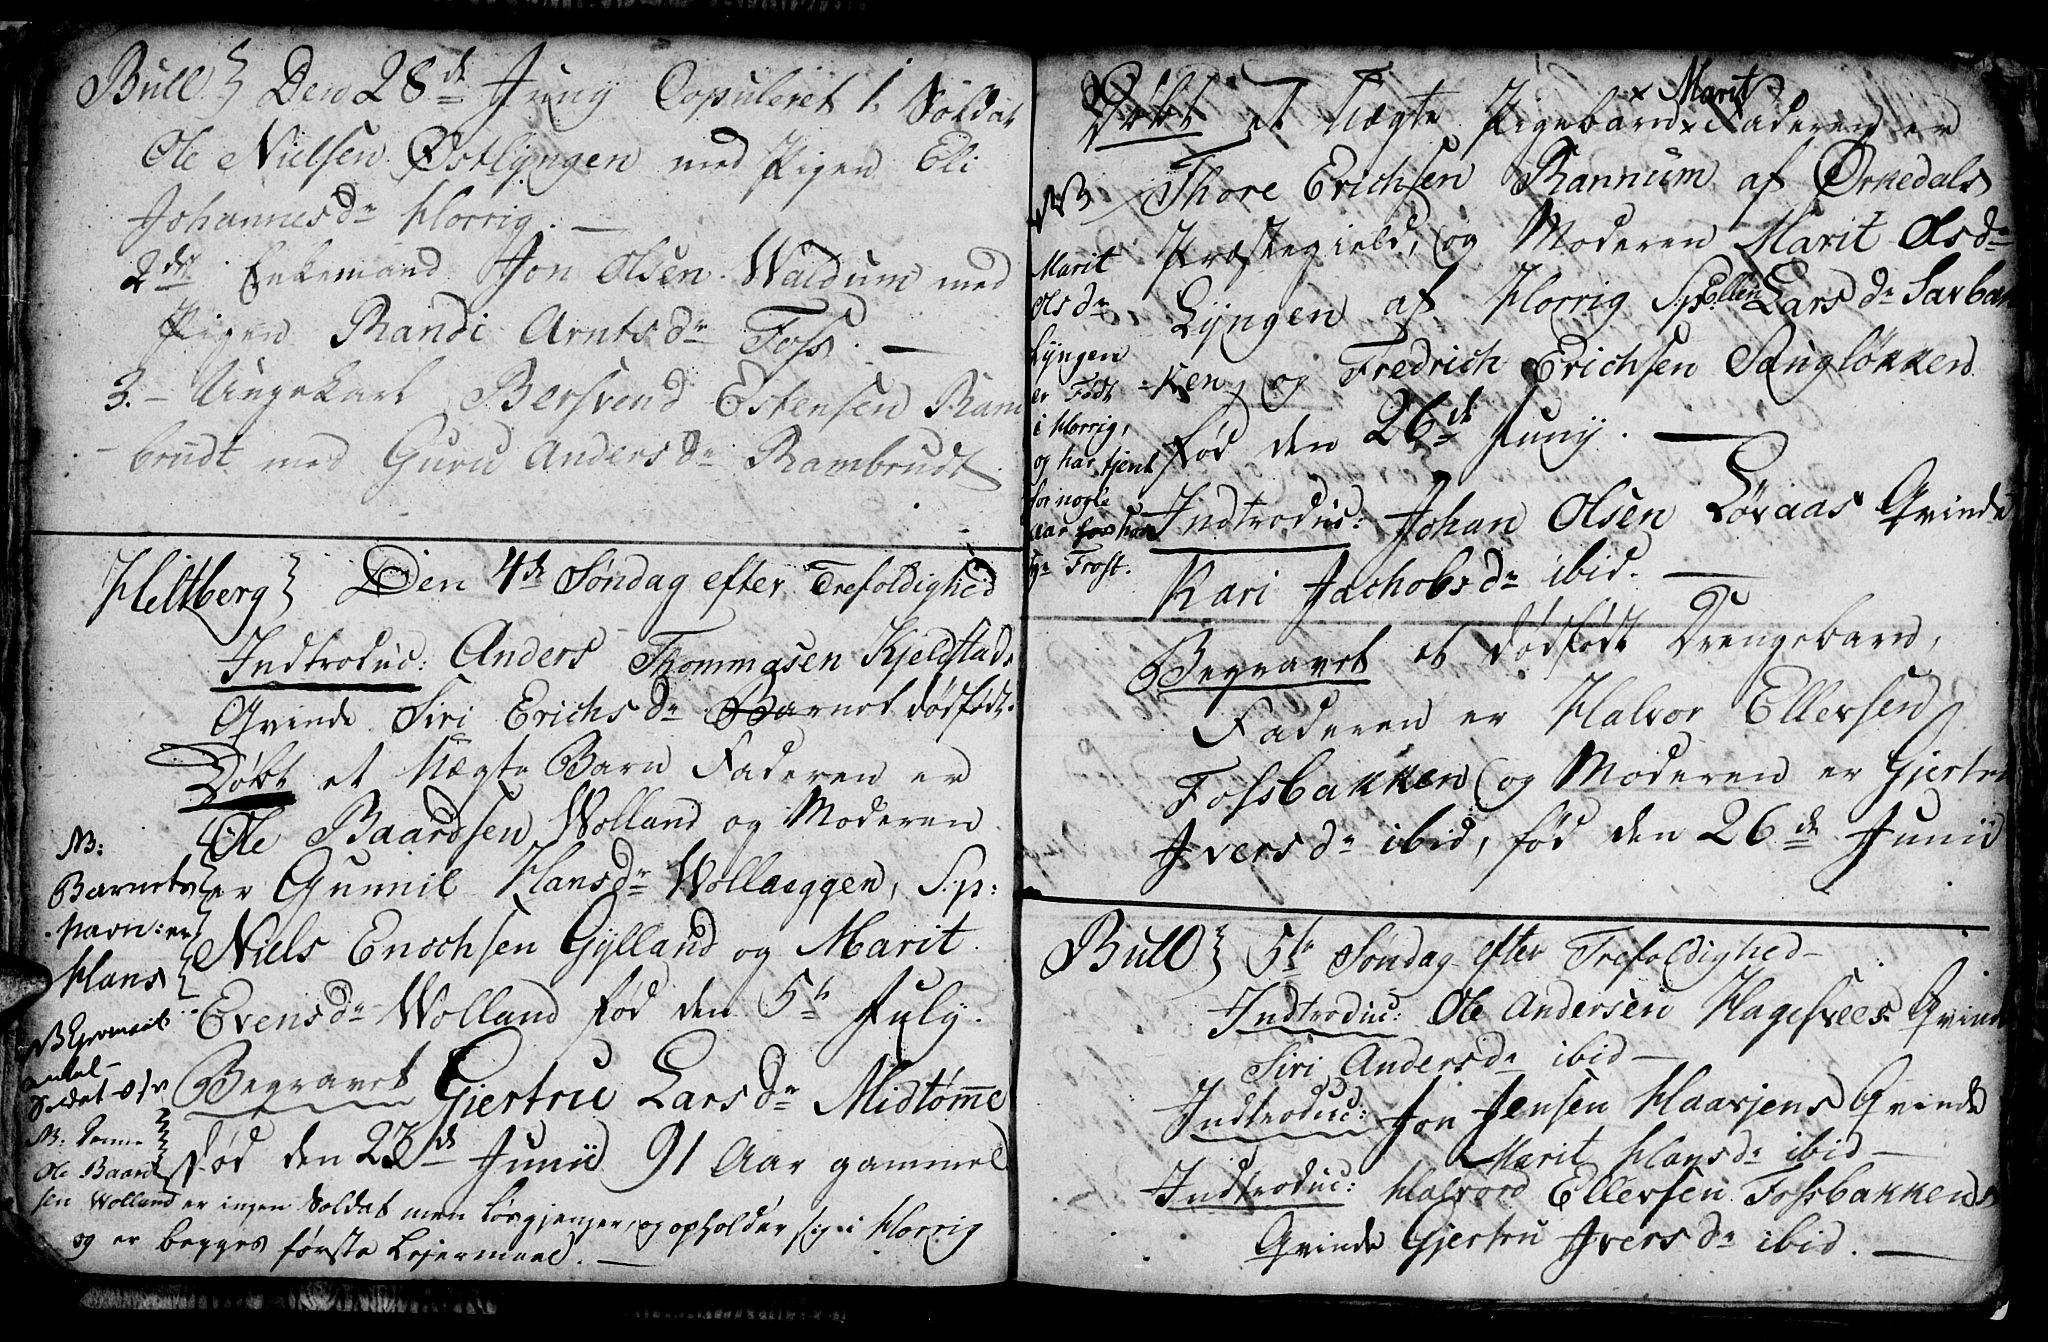 Bull Den 28de Juny Copuleret 1. Soldat
Ole Nielsen Østlyngen med Pigen Eli
Johannesdr Horrig. —
2den Enkemand Jon Olsen Waldum med
Pigen Randi Arntsdr Foss. —
3. — Ungekarl Bersvend Estensen Ram
- brudt med Guru Andersdr Rambrudt
Heltberg Den 4de Søndag efter Trefoldighed
Indtroduc: Anders Thommasen Kjeldstads
Qvinde Siri Erichsdr Barnet dødfødt.
Døbt et Uægte Barn Faderen er
Ole Baardsen Wolland og Moderen
er Gunnil Hansdr Wollaeggen, Sp:
Niels Enochsen Gylland og Marit
Evensdr Wolland fød den 5te July.
Begravet Gjertrue Larsdr Midtømme
Fød den 23de Junii 91 Aar gammel
NB:
Barnets
Navn: er
Hans
NB
NB: Denne
Ole Baard
sen Wolland er ingen Soldat men Løsgjenger, og opholder sig i Horrig
og er begges første Lejermaal. —
Døbt et Uægte Pigebarn × Marit × Faderen er
Thore Erichsen Rannum af Ørkedals
Præstegield, og Moderen Marit Olsdr
Lyngen af Horrig Sp: Ellen Larsdr Sarbak
-ken, og Fredrich Erichsen Sangløkken
fød den 26de Juny. —
NB
Marit
Olsdr
Lyngen
er Født
i Horrig,
og har tjent
for nogle
aar
Frost.
Indtroduc: Johan Olsen Løvaas Qvinde
Kari Jachobsdr ibid. —
Begravet et dødfødt Drengebarn,
Faderen er Halvor Ellevsen
Fossbakken og Moderen er Gjertru
Iversdr ibid, fød den 26de Junii
Bull 5te Søndag efter Trefoldighed —
Indtroduc: Ole Andersen Hagesvees Qvinde
Siri Andersdr ibid —
Indtroduc: Jon Jensen Haarjens Qvinde
Marit Hansdr ibid —
Indtroduc: Halvord Ellevsen Fossbakkens
Qvinde Gjertru Iversdr ibid. —